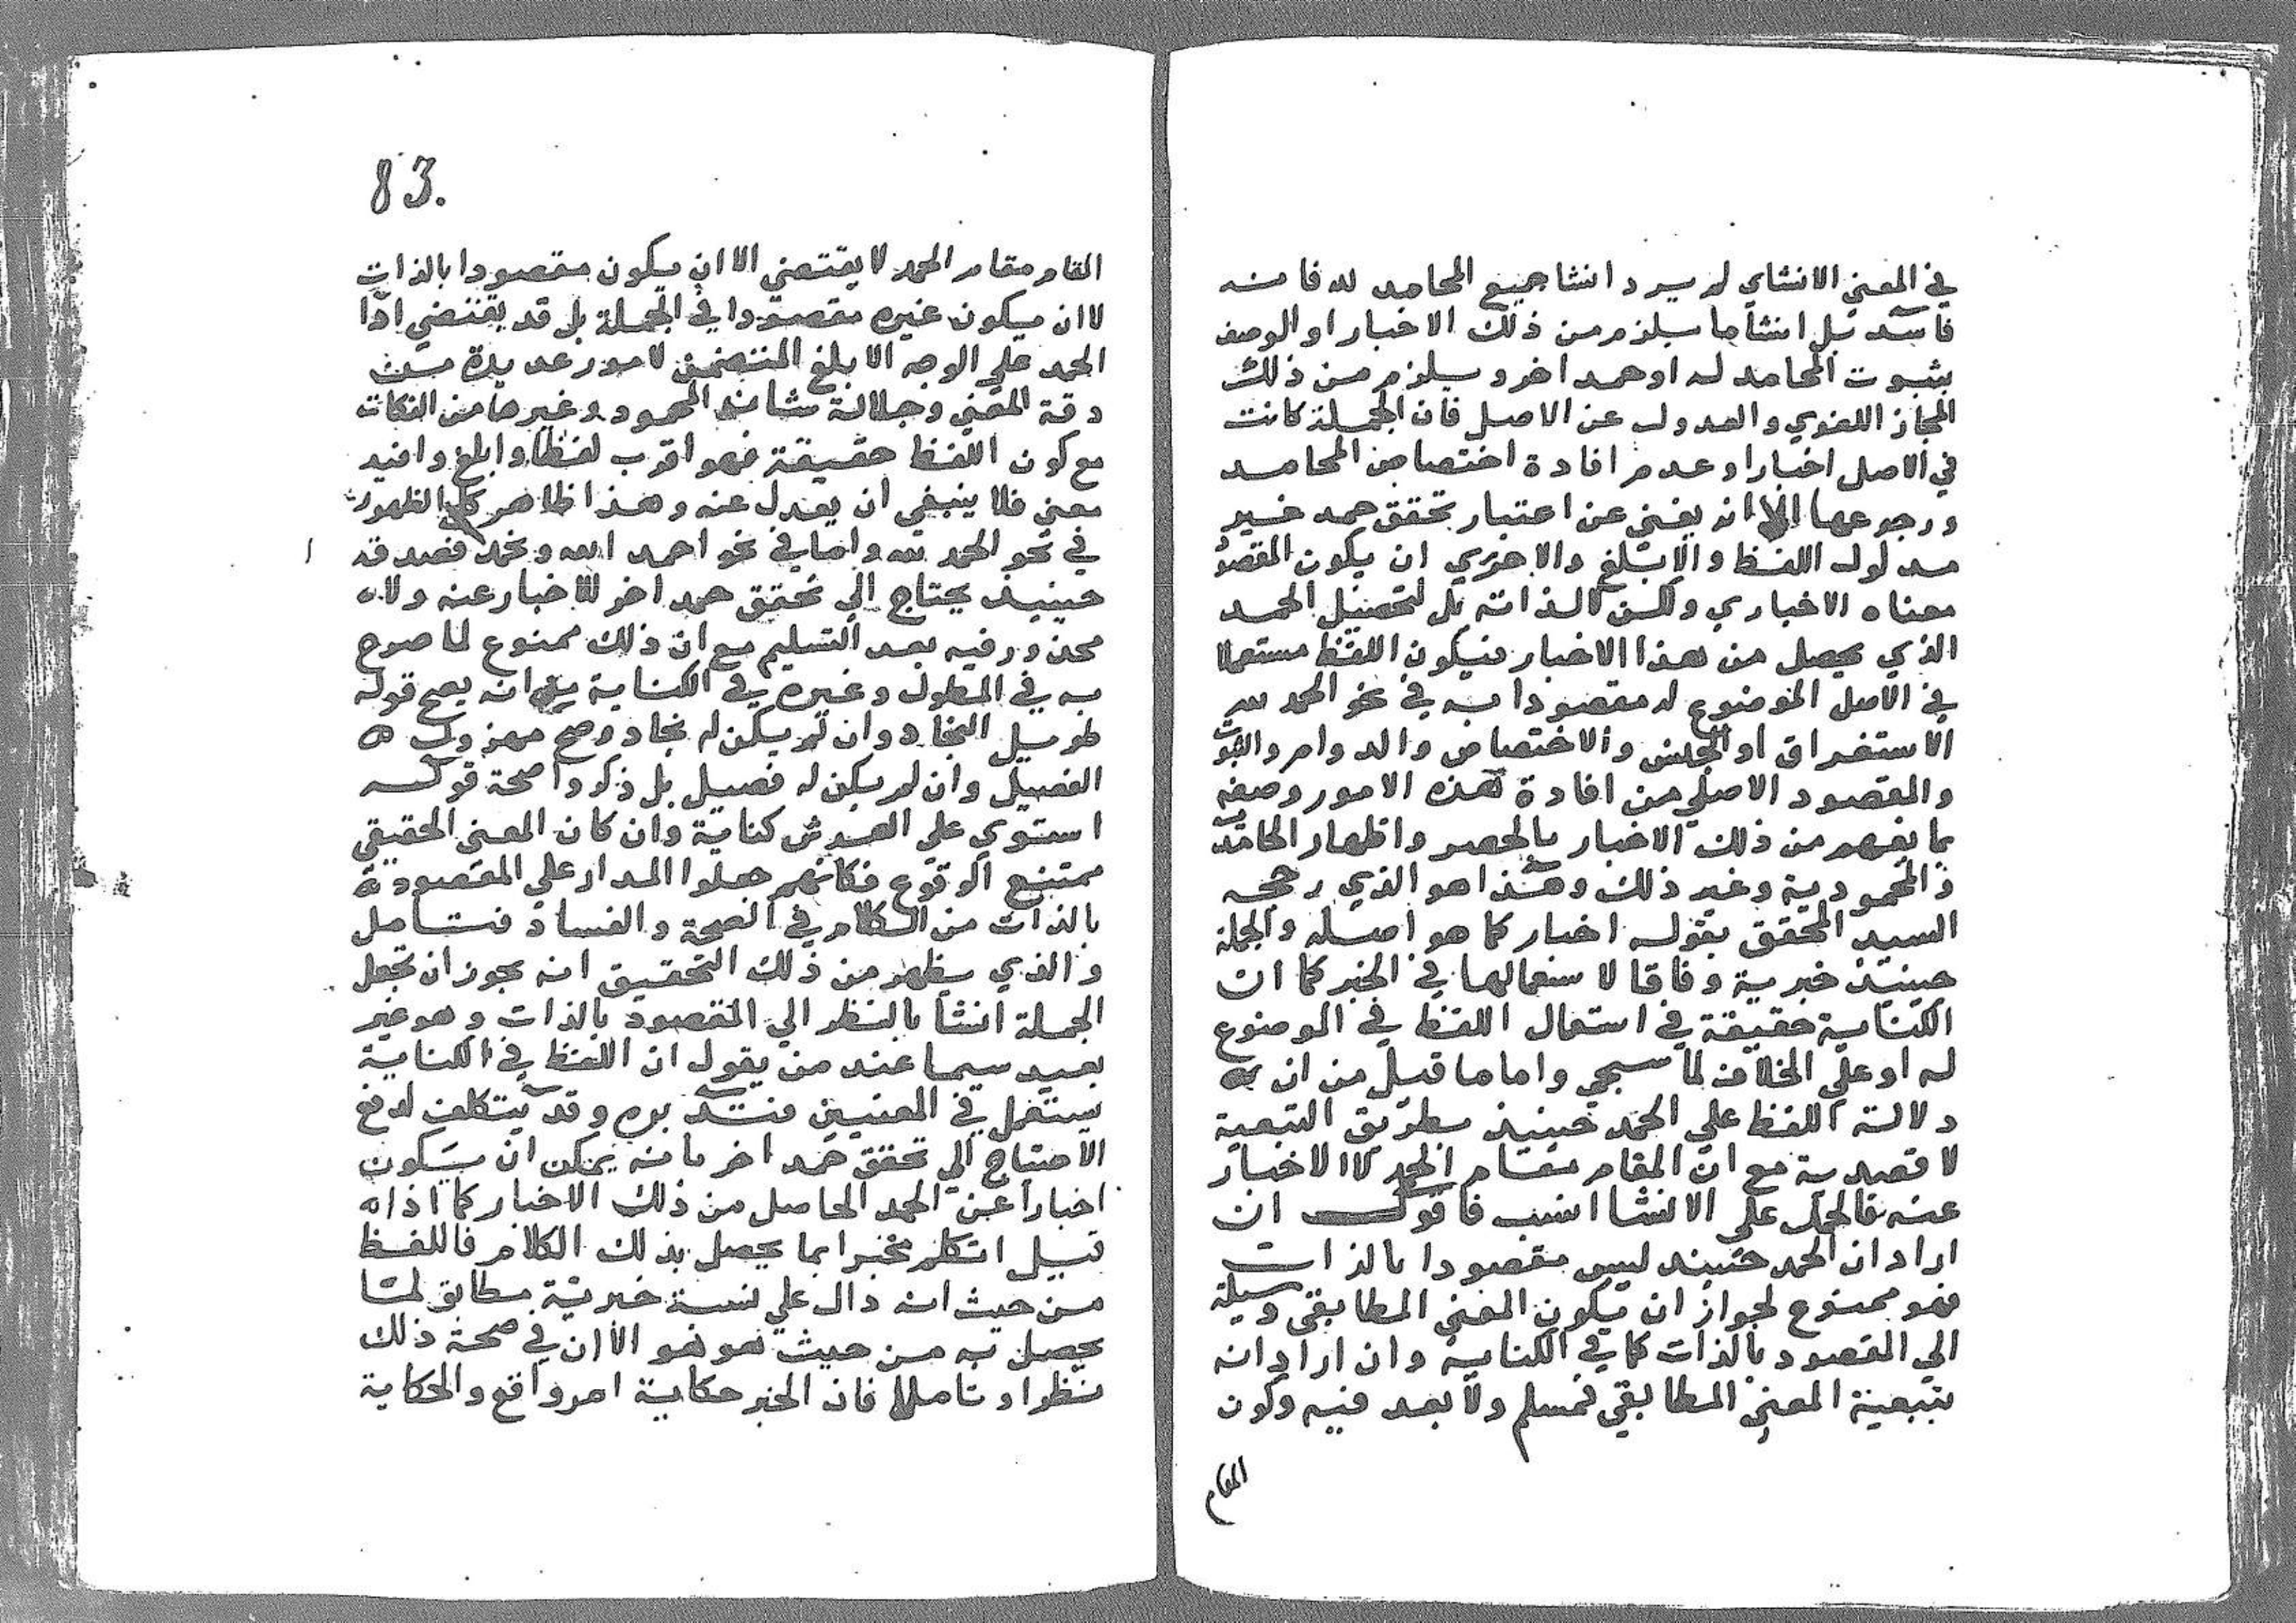 في المعني الانشاي لم يرد انشا جميع المحامد لله فانه
فاسد بل انشا ما يلزم من ذلك الاخبار او الوصف
بثبوت المحامد له او حمد اخر ويلزم من ذلك
المجاز اللغوي والعدول عن الاصل فان الجملة كانت
في الاصل اخبارا وعدم افادة اختصاص المحامد
ورجوعها الا انه يغني عن اعتبار تحقق حمد غير
مدلول اللفظ والابلغ والاحري ان يكون المقصود
معناه الاخباري ولكن لا لذاته بل لتحصيل الحمد
الذي يحصل من هذا الاخبار فيكون اللفظ مستعملا
في الاصل الموضوع له مقصودا به في نحو الحمد لله
الاستغراق او الجنس والاختصاص والدوام والثبوت
والمقصود الاصلي من افادة هذه الامور وصفه
بما يفهم من ذلك الاخبار بالحصر واظهار الحامدية
والمحمودية وغير ذلك وهذا هو الذي رجحه
السيد المحقق بقوله اخبار كما هو اصله والجملة
حينيذ خبرية وفاقا لاستعمالها في الخبر كما ان
الكناية حقيقة في استعمال اللفظ في الموضوع
له او علي الخلاف لما سيجي واما ما قيل من ان
دلالة اللفظ علي الحمد حينيذ بطريق التبعية
لا قصدية مع ان المقام مقام الحمد لا الاخبار
عنه فالحمل علي الانشا انسب فاقول ان
اراد ان الحمد حينيذ ليس مقصودا بالذات
فهو ممنوع لجواز ان تكون المعني المطابقي وسيلة
الي المقصود بالذات كما في الكناية وان اراد انه
بتبعية المعني المطابقي فمسلم ولا بعد فيه وكون
المقام
83.
المقام مقام الحمد لا يقتضي الا ان يكون مقصودا بالذات
لا ان يكون غيره مقصودا في الجملة بل قد يقتضي اذا
الحمد علي الوجه الابلغ المتضمن لامور عديدة من
دقة المعني وجلالة شان المحمود وغيرها من النكات
مع كون اللفظ حقيقة فهو اقرب لفظا وابلغ وافيد
معني فلا ينبغي ان يعدل عنه وهذا ظاهر كل الظهور
في نحو الحمد لله واما في نحو احمد الله ونحمد فصدقه
حينيذ يحتاج الي تحقق حمد اخر للاخبار عنه ولا
محذور فيه بعد التسليم مع ان ذلك ممنوع لما صرح
به في المطول وغيره في الكناية من انه يصح قوله
طويل النجاد وان لم يكن له نجاد وصح مهزول
الفصيل وان لم يكن له فصيل بل ذكروا صحة قوله
استوي علي العرش كناية وان كان المعني الحقيقي
ممتنع الوقوع فكانهم جعلوا المدار علي المقصودية
بالذات من الكلام في الصحة والفساد فتامل
والذي يظهر من ذلك التحقيق انه يجوز ان تجعل
الجملة انشا بالنظر الي المقصود بالذات وهو غير
بعيد سيما عند من يقول ان اللفظ في الكناية
يستعمل في المعنيين فتدبره وقد يتكلف لدفع
الاحتياج الي تحقق حمد اخر بانه يمكن ان يكون
اخبارا عن الحمد الحاصل من ذلك الاخبار كما اذا
قيل اتكلم مخبرا بما يحصل بذلك الكلام فاللفظ
من حيث انه دال علي نسبة خبرية مطابق لما
يحصل به من حيث هو هو الا ان في صحة ذلك
نظرا وتاملا فان الخبر حكاية امر واقع والحكاية